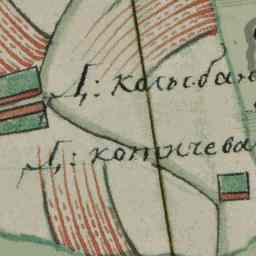 Д: колыбан
Д: копричева